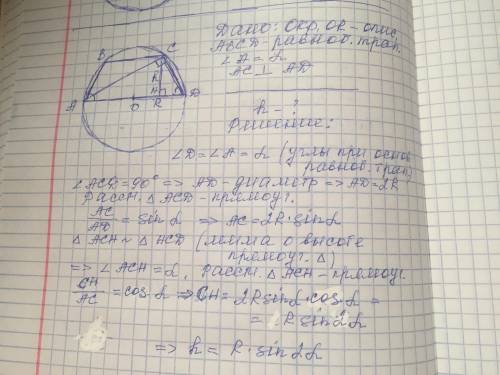 Дано: окр. OR – опис.
ABCD равноб. трап.
∠A = α
AC ⊥ AD
h – ?
Решение:
B C
R
A O R H D
∠D = ∠A = α (углы при основ.
равноб. трап.)
∠ACD = 90° => AD – диаметр => AD = 2R
Рассм. △ACD – прямоуг.
AC/AD = sin α => AC = 2R · sin α
△ACH ~ △ACD (лемма о высоте
прямоуг. △)
=> ∠ACH = α, Рассм. △ACH – прямоуг.
CH/AC = cos α => CH = 2R sin α · cos α =
= R sin 2α
=> h = R · sin 2α